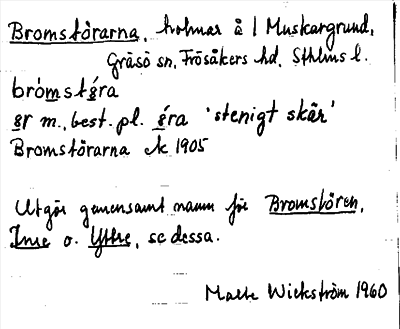 Bromstörarna, holmar å l Muskargrund,
Gräsö sn, Frösåkers hd, Sthlms l.
brómstǿra
ør m., best. pl. ǿra 'stenigt skär'
Bromstörarna Ek 1905
Utgör gemensamt namn för Bromstören,
Inre o. Yttre, se dessa.
Malte Wickström 1960